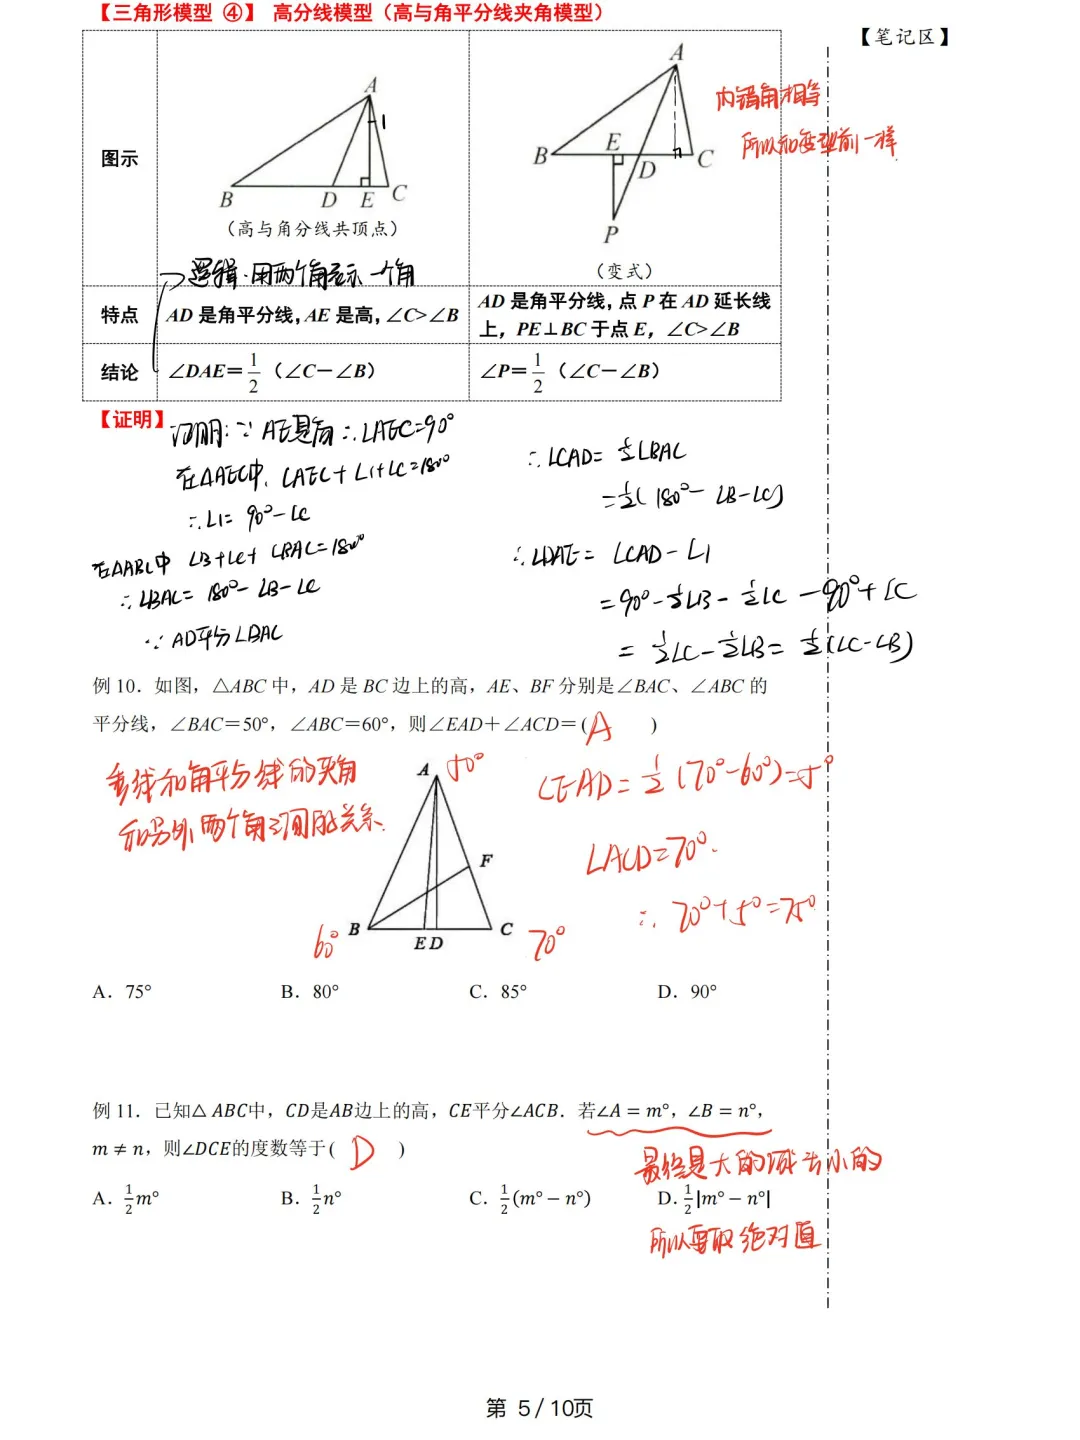 【三角形模型 ④】 高分线模型（高与角平分线夹角模型）
【笔记区】
图示
A
1
B
D
E
C
（高与角分线共顶点）
A
B
E
D
C
P
（变式）
内错角相等
所以和变型前一样
逻辑·用两个角表示一个角
特点
AD 是角平分线，AE 是高，∠C>∠B
AD 是角平分线，点 P 在 AD 延长线
上，PE⊥BC 于点 E，∠C>∠B
结论
∠DAE＝1/2（∠C－∠B）
∠P＝1/2（∠C－∠B）
【证明】
证明：∵ AE是高 ∴∠AEC=90°
在△AEC中，∠AEC+∠1+∠C=180°
∴∠1= 90°-∠C
在△ABC中 ∠B+∠C+∠BAC=180°
∴∠BAC= 180°-∠B-∠C
∵AD平分∠BAC
∴∠CAD= 1/2∠BAC
=1/2(180°-∠B-∠C)
∴∠DAE= ∠CAD-∠1
=90°-1/2∠B-1/2∠C-90°+∠C
= 1/2∠C-1/2∠B= 1/2(∠C-∠B)
例 10．如图，△ABC 中，AD 是 BC 边上的高，AE、BF 分别是∠BAC、∠ABC 的
平分线，∠BAC＝50°，∠ABC＝60°，则∠EAD＋∠ACD＝( A )
垂线和角平分线的夹角
和另外两个角之间的关系
A
50°
F
B
60°
E D
C
70°
∠EAD= 1/2(70°-60°)=5°
∠ACD=70°.
∴ 70°+5°=75°
A．75°
B．80°
C．85°
D．90°
例 11．已知△ ABC中，CD是AB边上的高，CE平分∠ACB．若∠A = m°，∠B = n°，
m ≠ n，则∠DCE的度数等于( D )
最终是大的减去小的
A．1/2m°
B．1/2n°
C．1/2(m° − n°)
D．1/2|m° − n°|
所以要取绝对值
第 5 / 10页